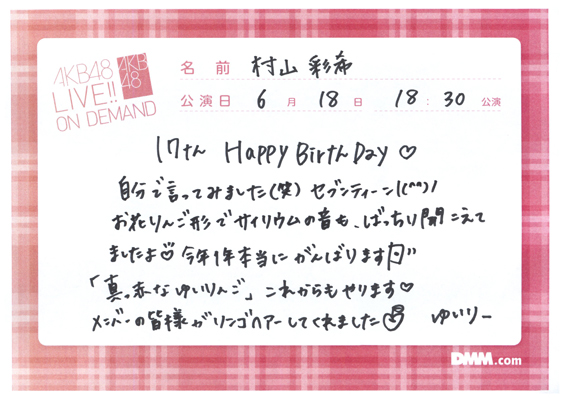 AKB48
LIVE!!
ON DEMAND
AKB
48
名前 村山 彩希
公演日 6月 18日 18:30 公演
17th Happy BirthDay♡
自分で言ってみました(笑) セブンティーン!(^^)!
お花りんご形でサイリウムの音も、ばっちり聞こえて
ましたよ♡ 今年1年本当にがんばります
「真っ赤なゆいりんご」これからもやります♡
メンバーの皆様がリンゴヘアーしてくれました ゆいりー
DMM.com